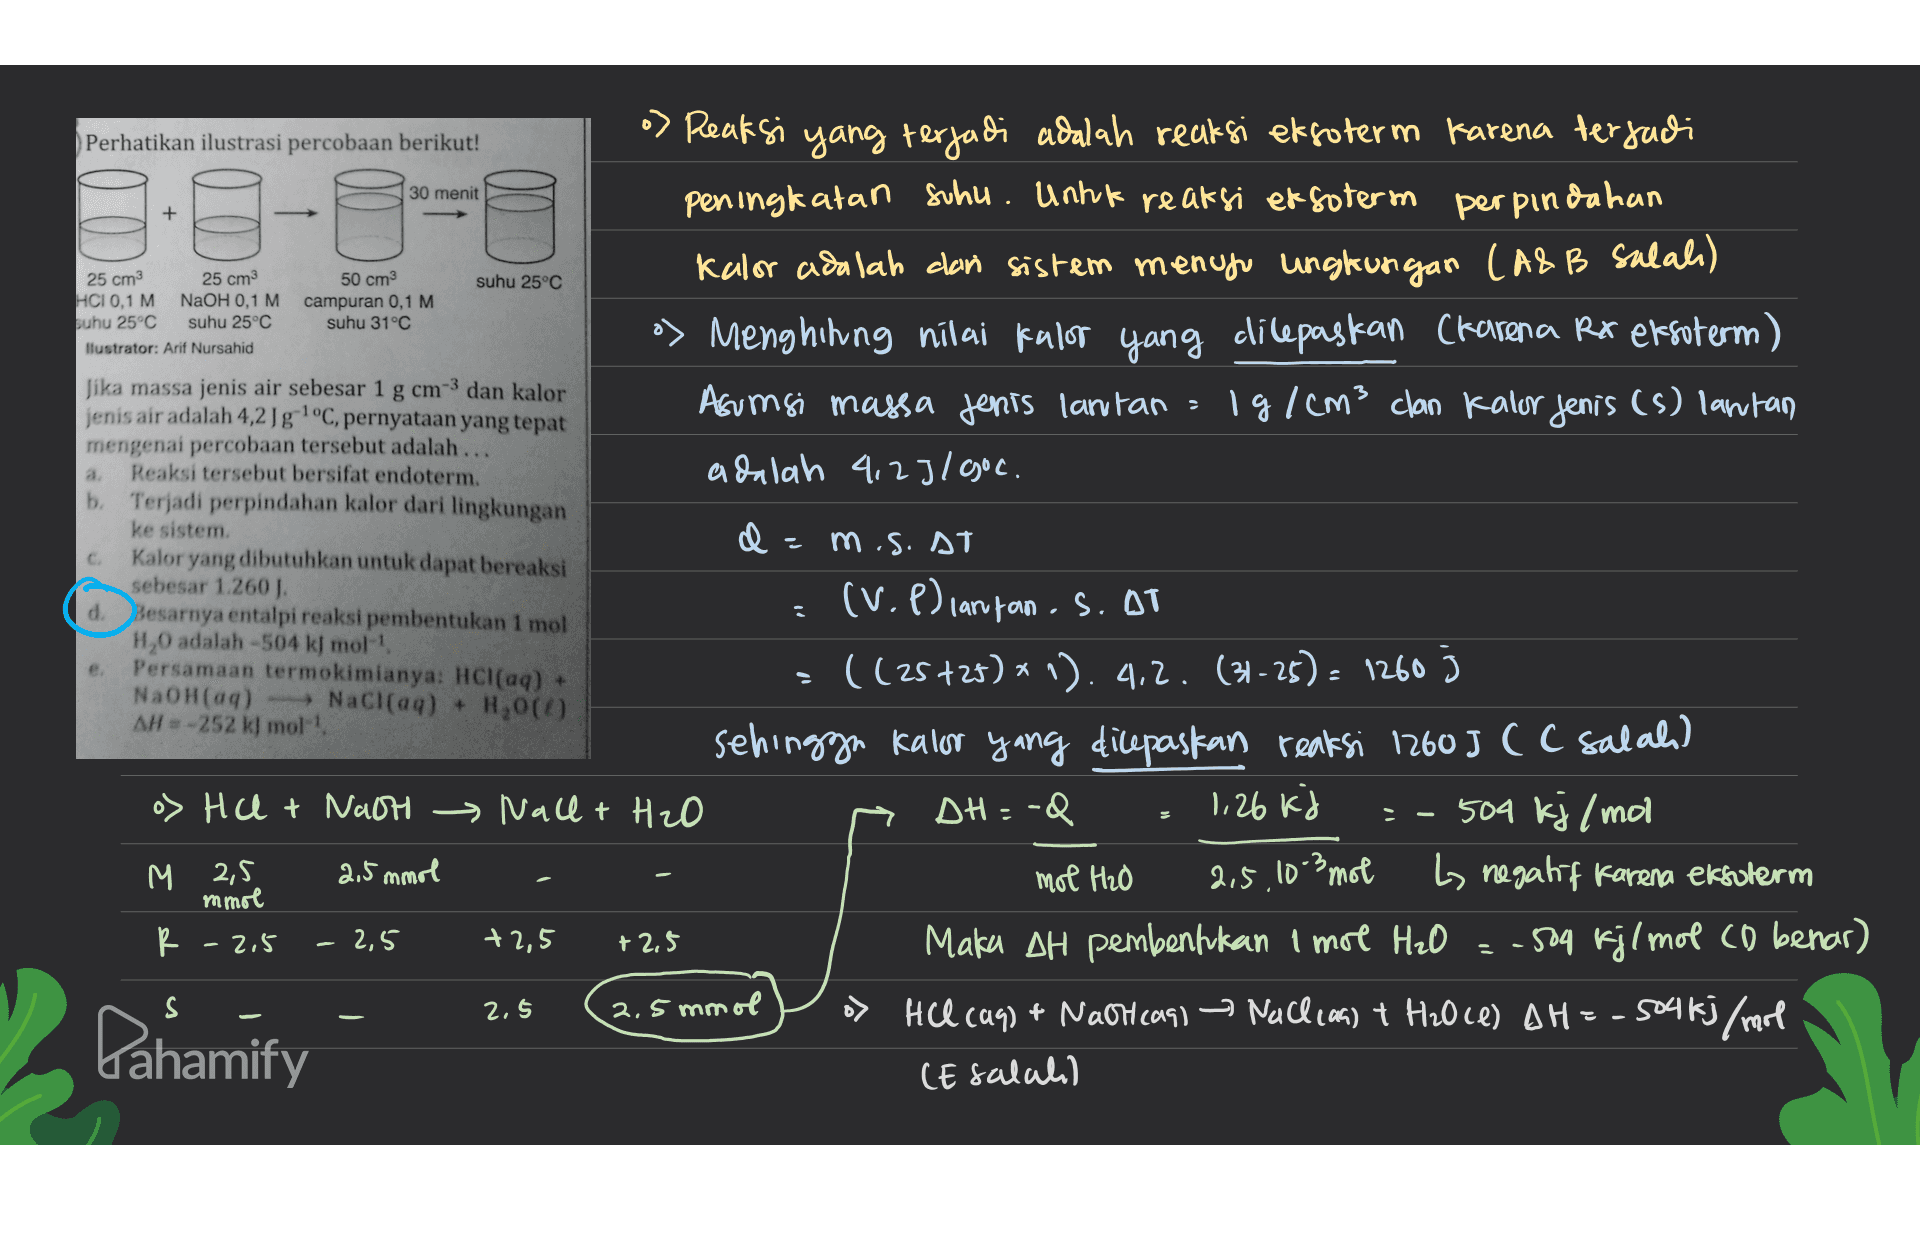 Perhatikan ilustrasi percobaan berikut!
+
30 menit
25 cm³ 25 cm³ 50 cm³ suhu 25°C
HCl 0,1 M NaOH 0,1 M campuran 0,1 M
suhu 25°C suhu 25°C suhu 31°C
Ilustrator: Arif Nursahid
Jika massa jenis air sebesar 1 g cm⁻³ dan kalor
jenis air adalah 4,2 J g⁻¹°C, pernyataan yang tepat
mengenai percobaan tersebut adalah . . .
a. Reaksi tersebut bersifat endoterm.
b. Terjadi perpindahan kalor dari lingkungan
ke sistem.
c. Kalor yang dibutuhkan untuk dapat bereaksi
sebesar 1.260 J.
d. Besarnya entalpi reaksi pembentukan 1 mol
H₂O adalah –504 kJ mol⁻¹.
e. Persamaan termokimianya: HCl(aq) +
NaOH(aq) → NaCl(aq) + H₂O(ℓ)
ΔH = –252 kJ mol⁻¹.
Reaksi yang terjadi adalah reaksi eksoterm karena terjadi
peningkatan suhu. Untuk reaksi eksoterm perpindahan
kalor adalah dari sistem menuju lingkungan (A & B salah)
Menghitung nilai kalor yang dilepaskan (karena Rx eksoterm)
Asumsi massa jenis larutan = 1 g/cm³ dan kalor jenis (s) larutan
adalah 4,2 J/g°C.
Q = m.s.ΔT
= (V.ρ) larutan . s. ΔT
= ((25+25) x 1). 4,2. (31-25) = 1260 J
sehingga kalor yang dilepaskan reaksi 1260 J (C salah)
HCl + NaOH → NaCl + H₂O
M 2,5 mmol 2,5 mmol - -
R - 2,5 - 2,5 + 2,5 + 2,5
S - - 2,5 2,5 mmol
ΔH = -Q = 1,26 kJ = - 504 kJ/mol
mol H₂O 2,5.10⁻³ mol ↳ negatif karena eksoterm
Maka ΔH pembentukan 1 mol H₂O = - 504 kJ/mol (D benar)
HCl(aq) + NaOH(aq) → NaCl(aq) + H₂O(l) ΔH = - 504 kJ/mol
(E salah)
Pahamify